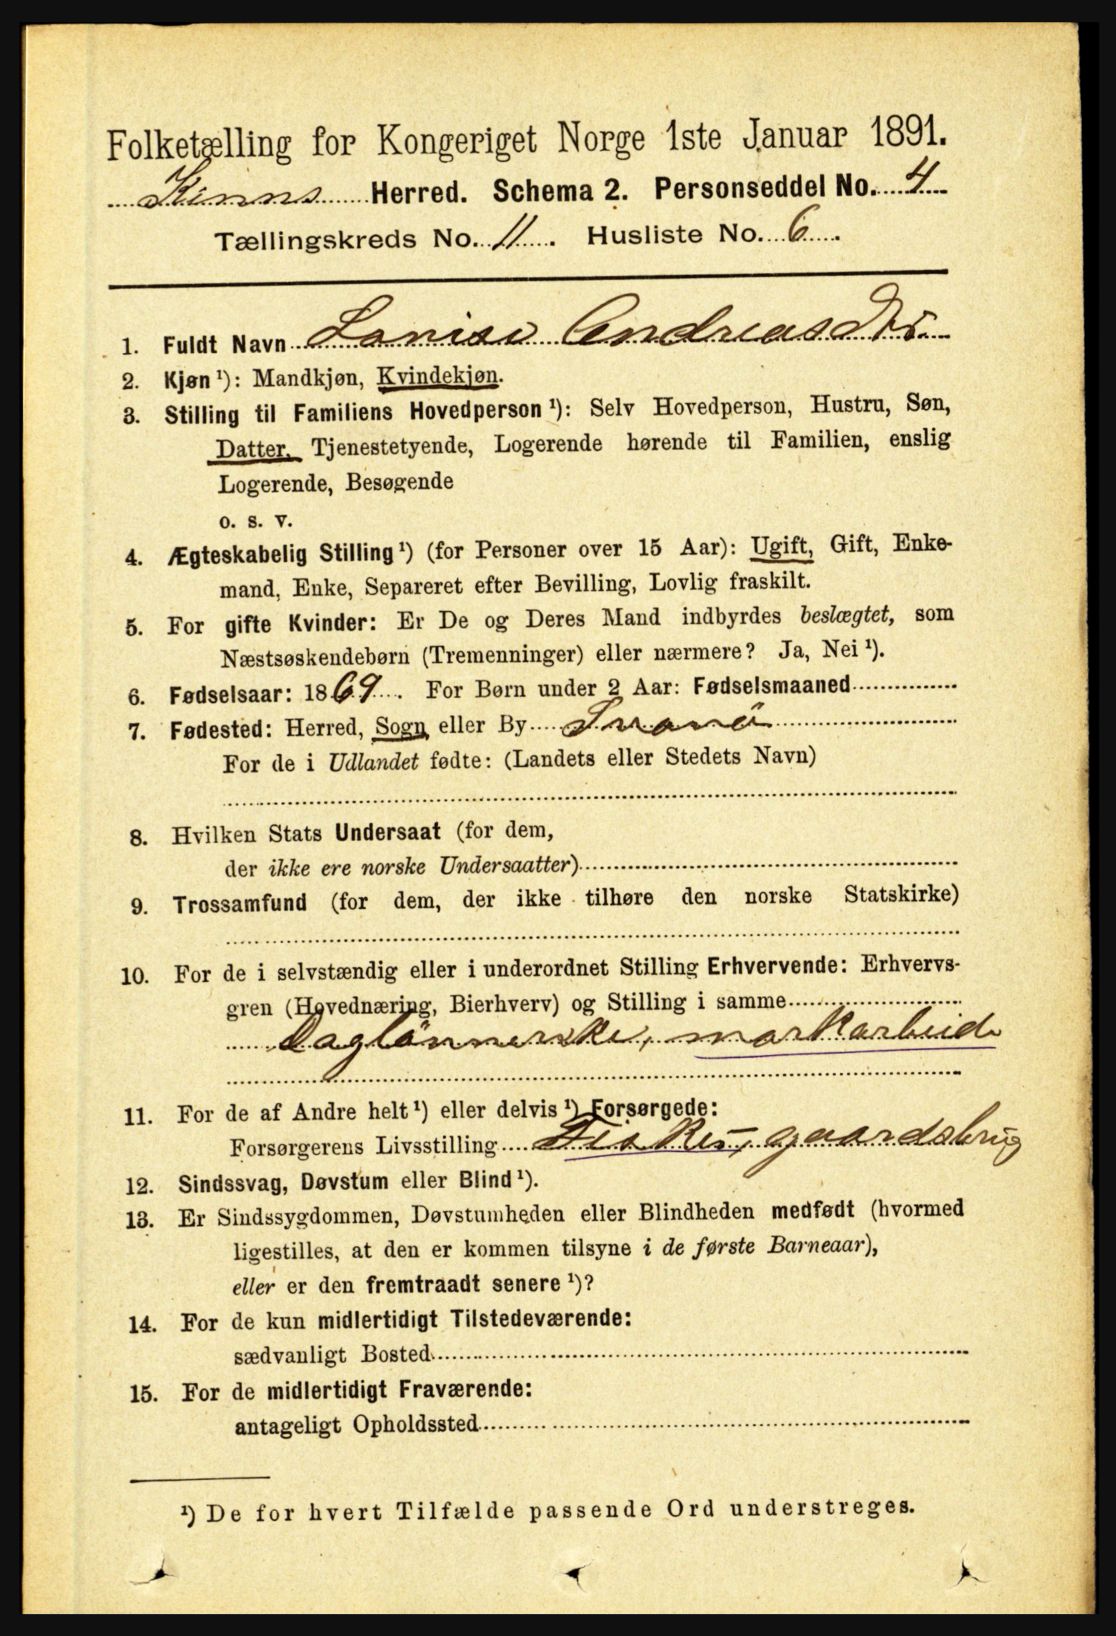 Folketælling for Kongeriget Norge 1ste Januar 1891.
Kinns Herred. Schema 2. Personseddel No. 4
Tællingskreds No. 11. Husliste No. 6.
1. Fuldt Navn Lovise Andreasdtr.
2. Kjøn ¹): Mandkjøn, Kvindekjøn.
3. Stilling til Familiens Hovedperson ¹): Selv Hovedperson, Hustru, Søn,
Datter, Tjenestetyende, Logerende hørende til Familien, enslig
Logerende, Besøgende
o. s. v.
4. Ægteskabelig Stilling ¹) (for Personer over 15 Aar): Ugift, Gift, Enke-
mand, Enke, Separeret efter Bevilling, Lovlig fraskilt.
5. For gifte Kvinder: Er De og Deres Mand indbyrdes beslægtet, som
Næstsøskendebørn (Tremenninger) eller nærmere? Ja, Nei ¹).
6. Fødselsaar: 1869. For Børn under 2 Aar: Fødselsmaaned
7. Fødested: Herred, Sogn, eller By Svanø
For de i Udlandet fødte: (Landets eller Stedets Navn)
8. Hvilken Stats Undersaat (for dem,
der ikke ere norske Undersaatter)
9. Trossamfund (for dem, der ikke tilhøre den norske Statskirke)
10. For de i selvstændig eller i underordnet Stilling Erhvervende: Erhvervs-
gren (Hovednæring, Bierhverv) og Stilling i samme
Daglönnerske, markarbeide
11. For de af Andre helt ¹) eller delvis ¹) Forsørgede:
Forsørgerens Livsstilling Fisker, gaardsbrug
12. Sindssvag, Døvstum eller Blind ¹).
13. Er Sindssygdommen, Døvstumheden eller Blindheden medfødt (hvormed
ligestilles, at den er kommen tilsyne i de første Barneaar),
eller er den fremtraadt senere ¹)?
14. For de kun midlertidigt Tilstedeværende:
sædvanligt Bosted
15. For de midlertidigt Fraværende:
antageligt Opholdssted
¹) De for hvert Tilfælde passende Ord understreges.